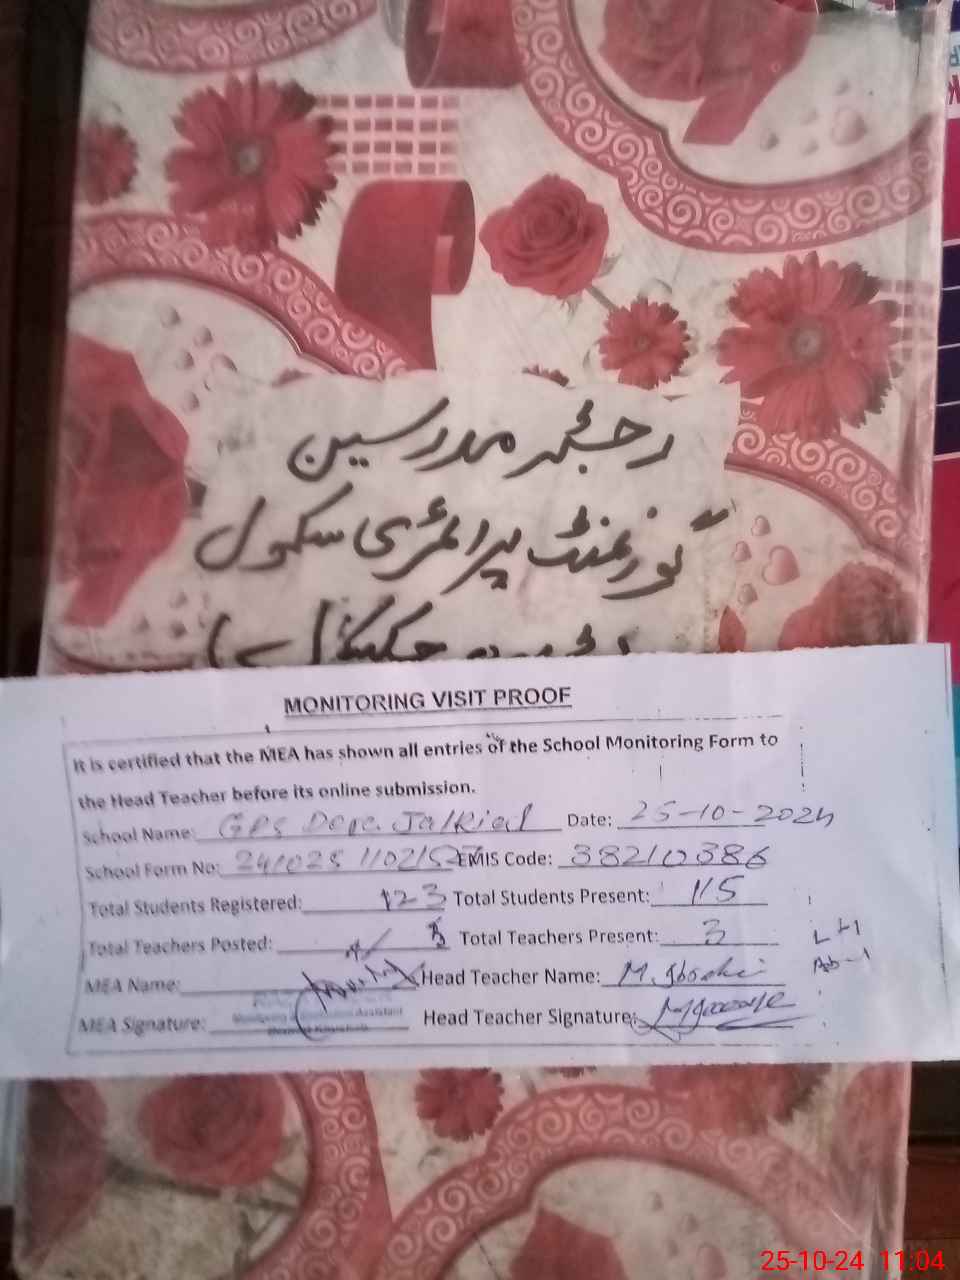 رجسٹر مدرسین
گورنمنٹ پرائمری سکول
MONITORING VISIT PROOF
It is certified that the MEA has shown all entries of the School Monitoring Form to
the Head Teacher before its online submission.
School Name: GPS Date: 25-10-2024
School Form No: EMIS Code: 38210386
Total Students Registered: 123 Total Students Present: 115
Total Teachers Posted: Total Teachers Present: 3
L-1
Ab-1
MEA Name: Head Teacher Name: M.
MEA Signature: Assistant Head Teacher Signature:
25-10-24 11:04